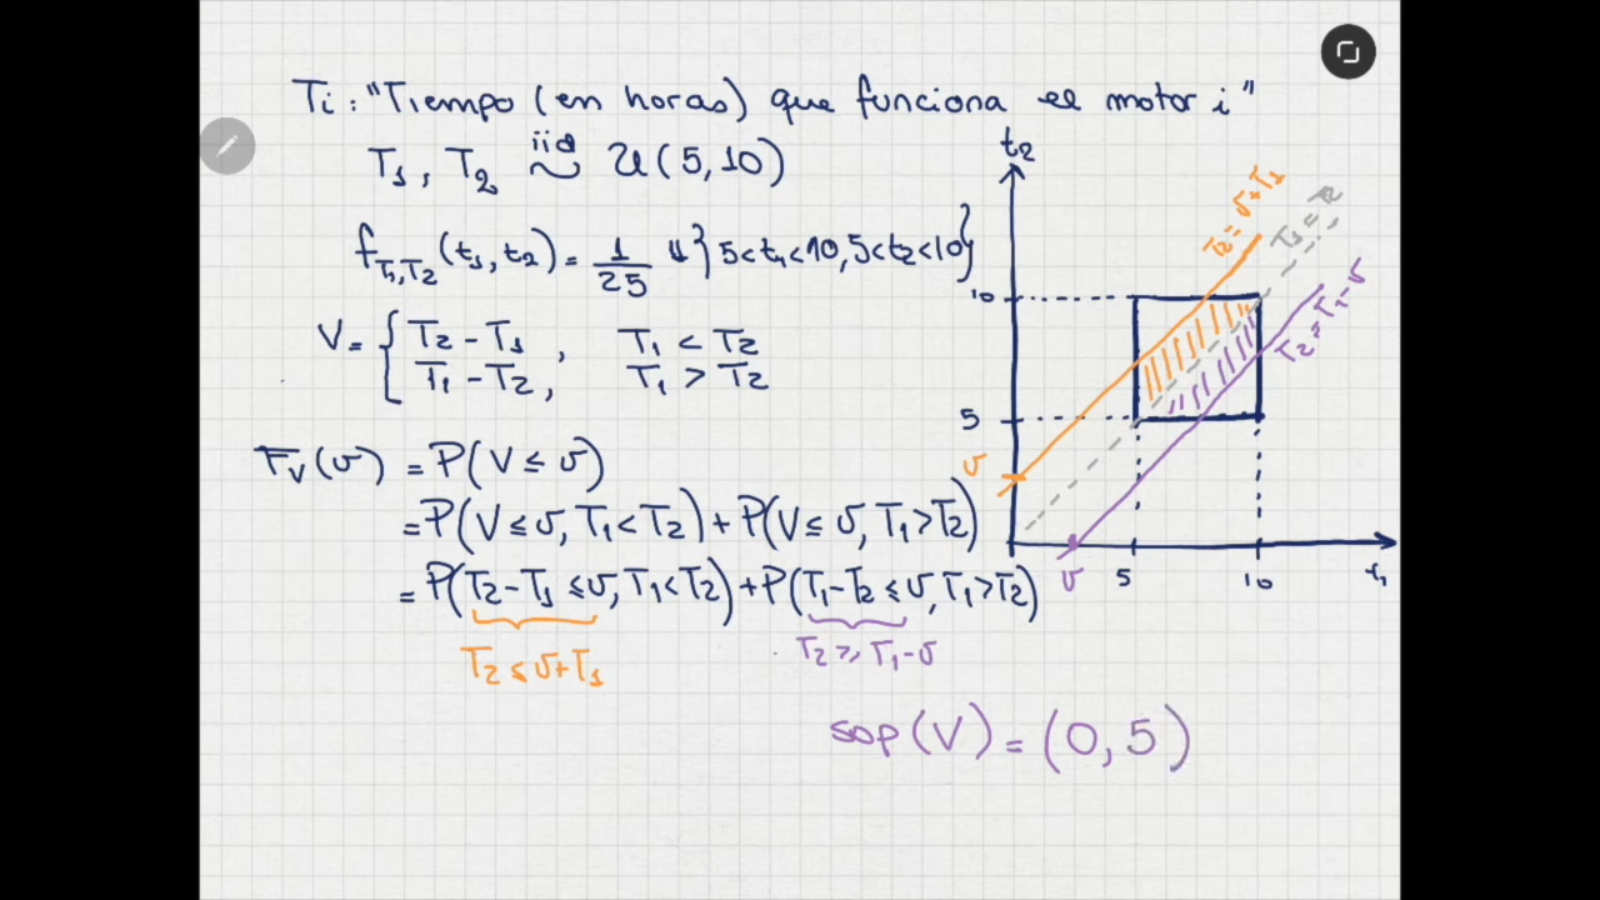 Ti: "Tiempo (en horas) que funciona el motor i"
T₁, T₂ iid ~ U(5,10)
f_{T₁,T₂}(t₁,t₂) = 1/25 1{5<t₁<10, 5<t₂<10}
V = { T₂ - T₁, T₁ < T₂
T₁ - T₂, T₁ > T₂
F_V(v) = P(V ≤ v)
= P(V ≤ v, T₁ < T₂) + P(V ≤ v, T₁ > T₂)
= P(T₂ - T₁ ≤ v, T₁ < T₂) + P(T₁ - T₂ ≤ v, T₁ > T₂)
T₂ ≤ v + T₁
T₂ ≥ T₁ - v
sop(V) = (0, 5)
t₂
T₂ = v + T₁
T₁ = T₂
T₂ = T₁ - v
10
5
v
v
5
10
t₁